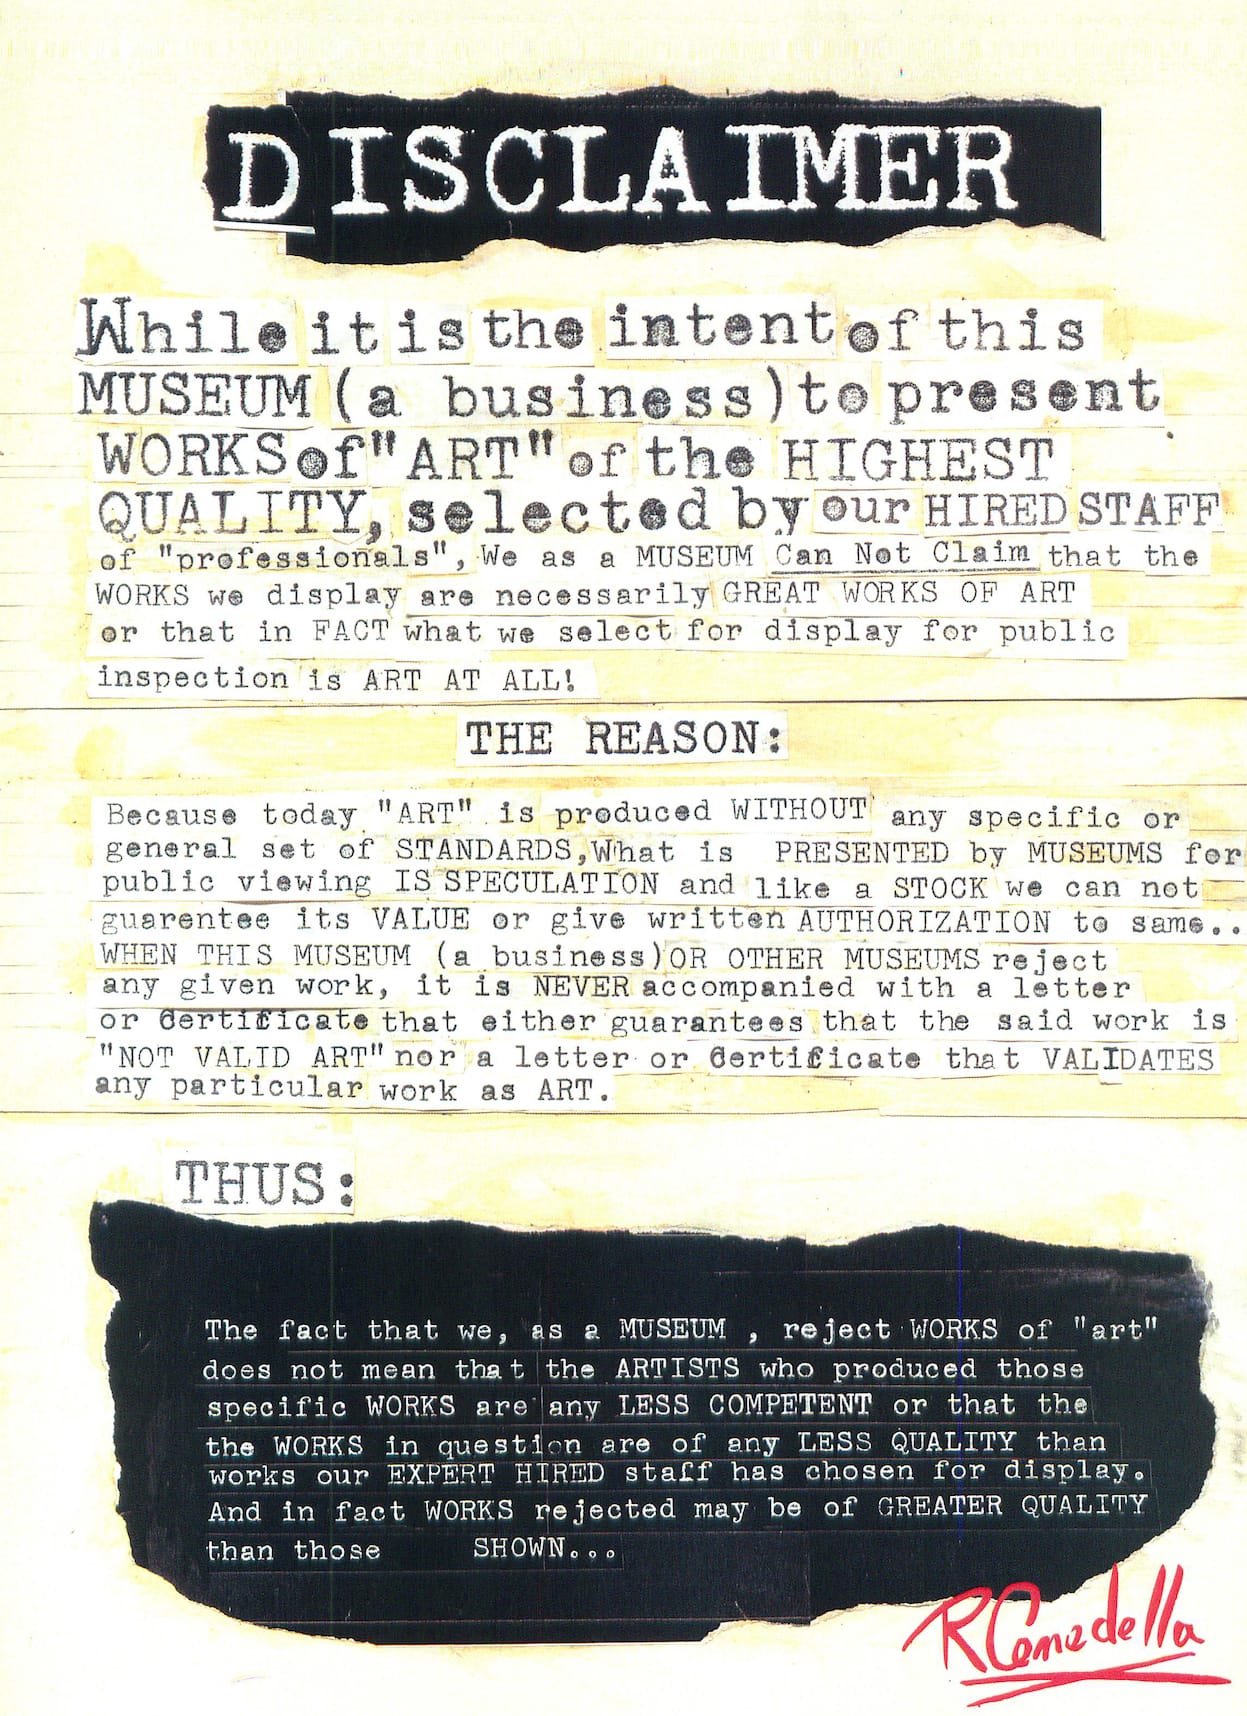 DISCLAIMER
While it is the intent of this
MUSEUM (a business) to present
WORKS of "ART" of the HIGHEST
QUALITY, selected by our HIRED STAFF
of "professionals", We as a MUSEUM Can Not Claim that the
WORKS we display are necessarily GREAT WORKS OF ART
or that in FACT what we select for display for public
inspection is ART AT ALL!
THE REASON:
Because today "ART" is produced WITHOUT any specific or
general set of STANDARDS, What is PRESENTED by MUSEUMS for
public viewing IS SPECULATION and like a STOCK we can not
guarentee its VALUE or give written AUTHORIZATION to same..
WHEN THIS MUSEUM (a business) OR OTHER MUSEUMS reject
any given work, it is NEVER accompanied with a letter
or Certificate that either guarantees that the said work is
"NOT VALID ART" nor a letter or Certificate that VALIDATES
any particular work as ART.
THUS:
The fact that we, as a MUSEUM , reject WORKS of "art"
does not mean that the ARTISTS who produced those
specific WORKS are any LESS COMPETENT or that the
the WORKS in question are of any LESS QUALITY than
works our EXPERT HIRED staff has chosen for display.
And in fact WORKS rejected may be of GREATER QUALITY
than those SHOWN...
RCenedella